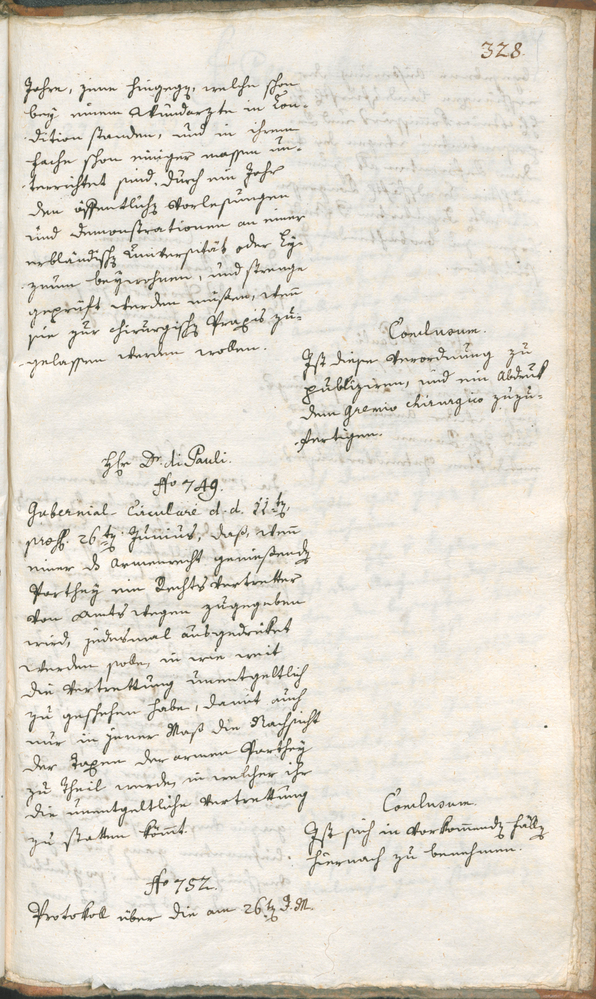 328.
Jahre, jene hingegen, welche schon
bey einem Wundarzte in Con-
dition standen, und in ihrem
Fache schon einiger massen un-
terrichtet sind, durch ein Jahr
den öffentlichen Vorlesungen
und Demonstrationen an einer
erbländischen Universität oder Ly-
zeum beywohnen, und strenge
geprüft werden müßen, wenn
sie zur chirurgischen Praxis zu-
gelassen werden wollen.
Conclusum.
Ist diese Verordnung zu
publiziren, und ein Abdruk
dem Gremio chirurgico zuzu-
fertigen.
Hr Dr. di Pauli.
No 749.
Gubernial-Circulare d. d. 11ten
praes. 26ten Junius, daß, wenn
einer das Armenrecht genießenden
Parthey ein Rechtsvertretter
von Amtswegen zugegeben
wird, jedesmal ausgedrüket
werden solle, in wie weit
die Vertrettung unentgeltlich
zu geschehen habe, damit auch
nur in jener Maß die Nachsicht
der Taxen der armen Parthey
zu Theil werde, in welcher ihr
die unentgeltliche Vertrettung
zu statten kömmt.
Conclusum.
Ist sich in vorkommenden Fällen
hiernach zu benehmen.
No 752.
Protokoll über die am 26ten d. M.